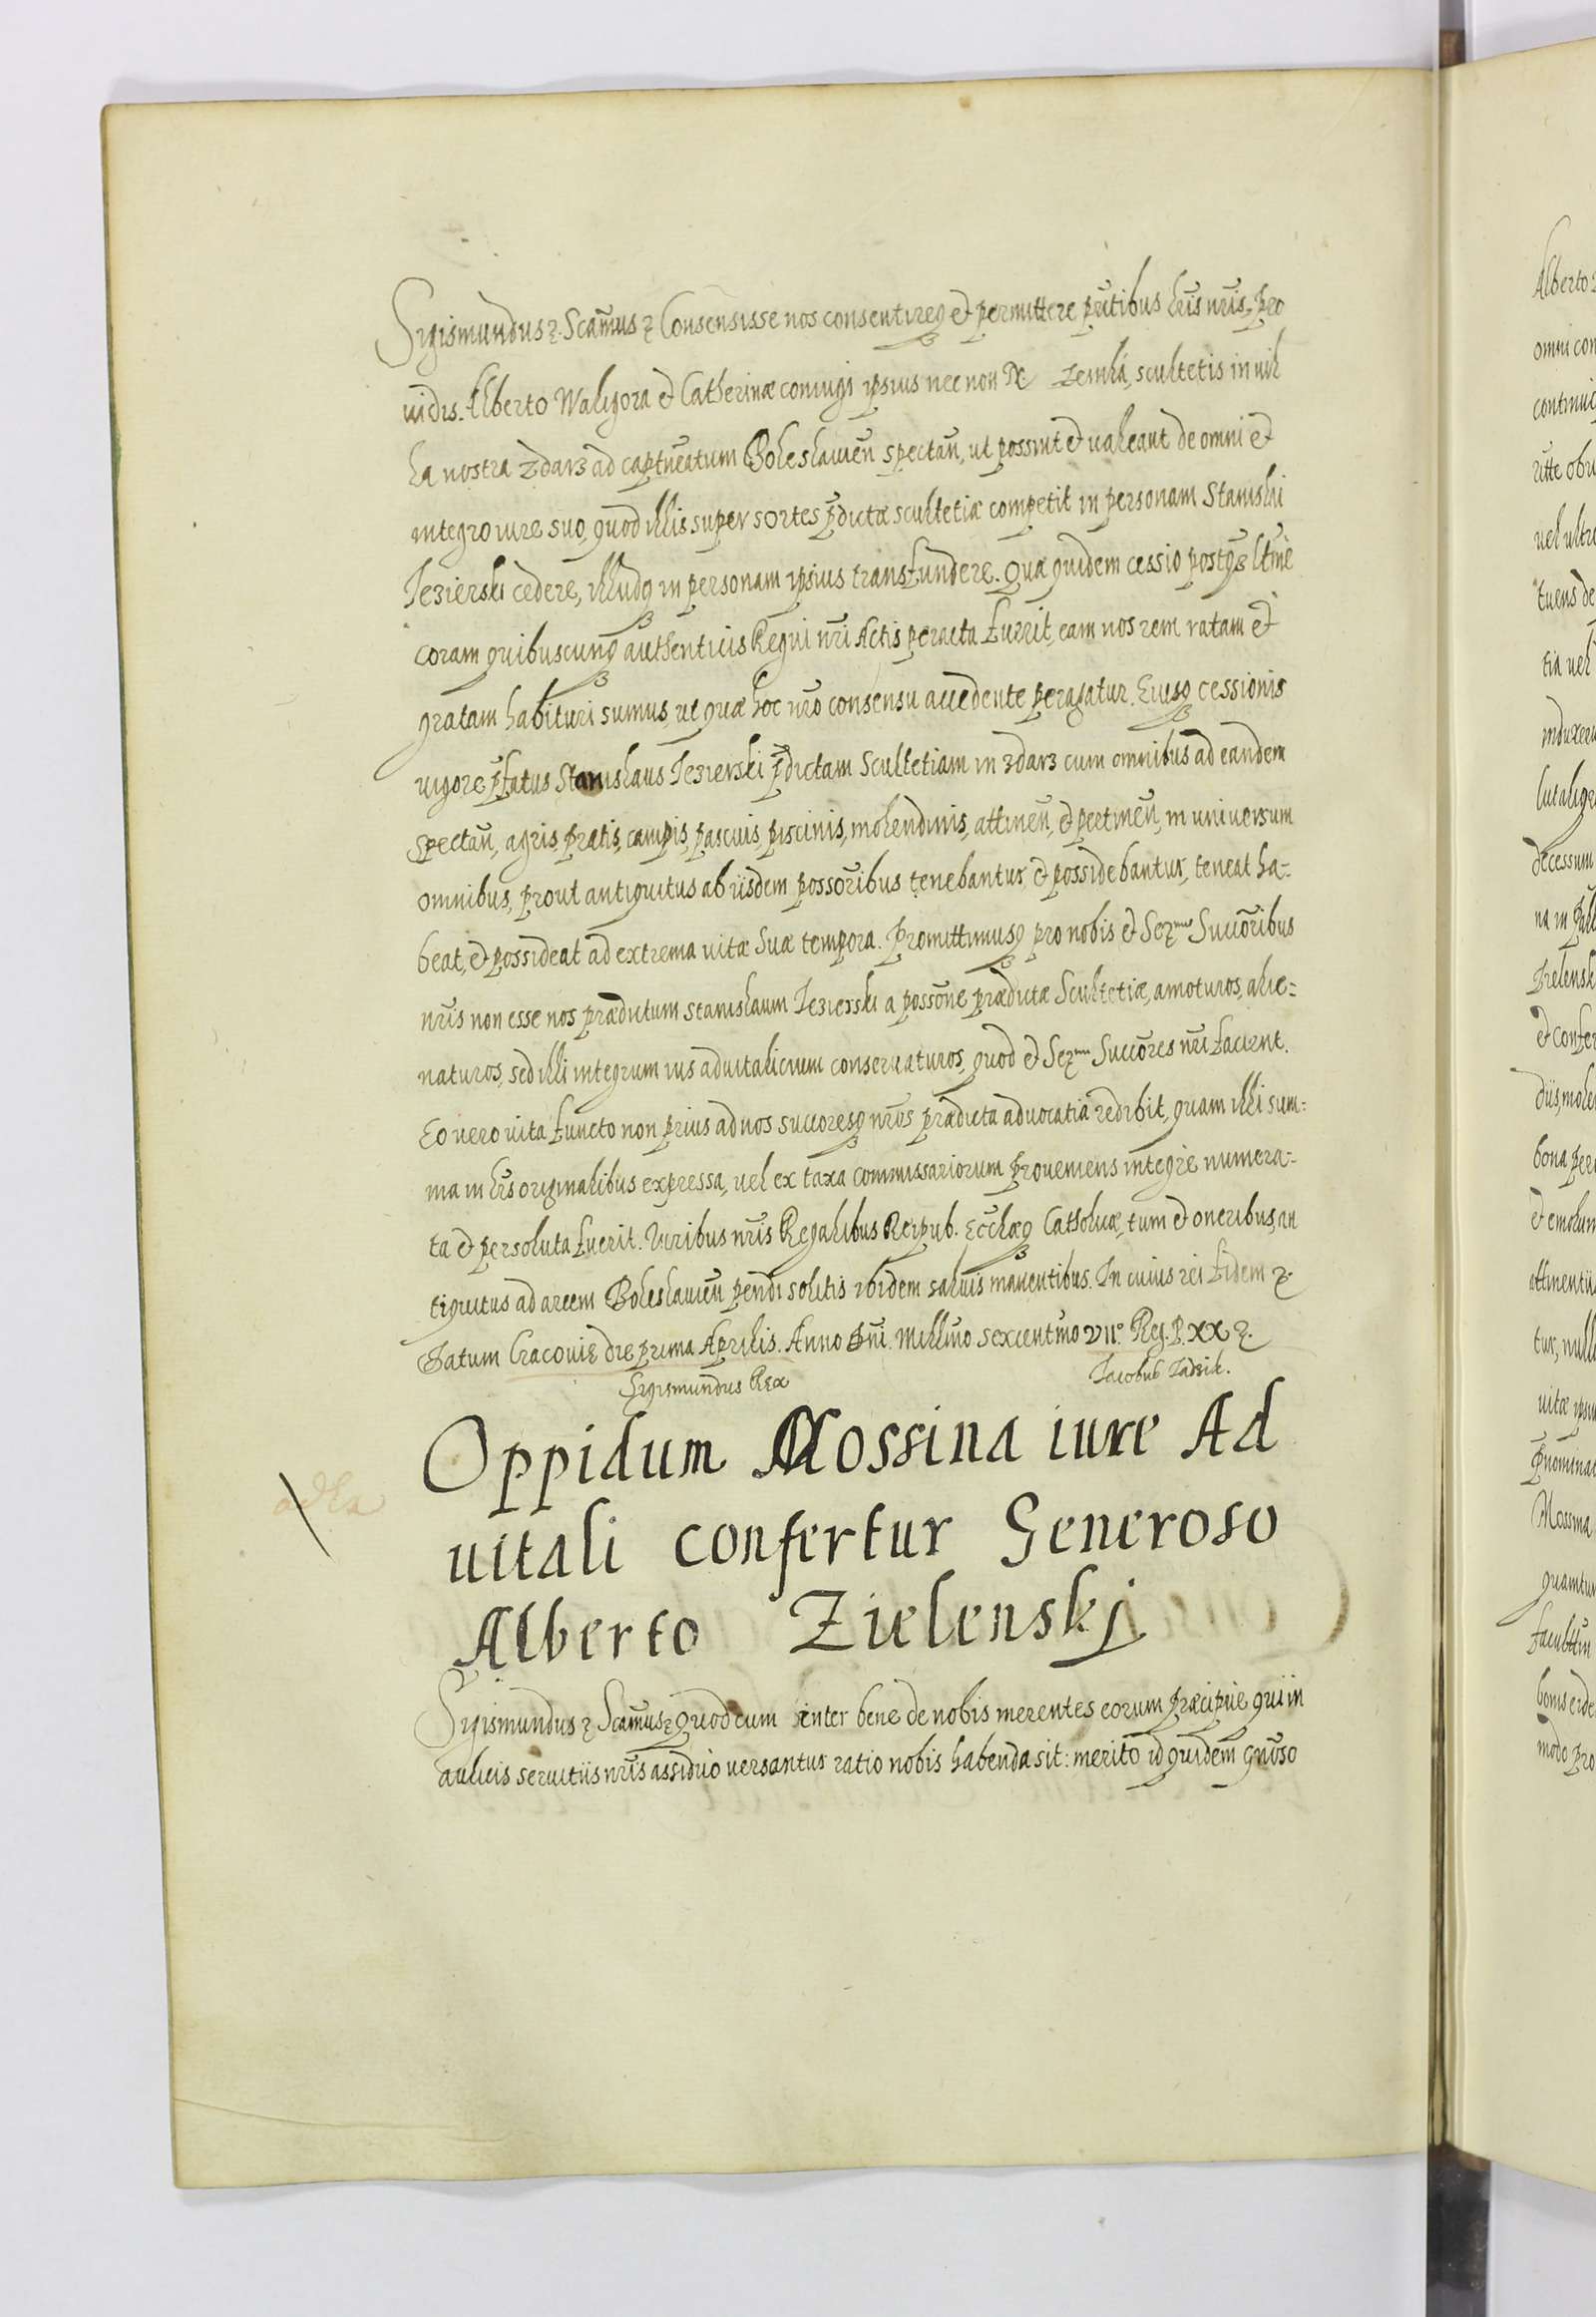 Sigismundus ꝛ. Scam̃us ꝛ Consensisse nos consentireq3 et permittere p̃ntibus l̃ris nr̃is, pro
uidis. Alberto Waligora et Catherinæ coniugi ipsius nec non N. Zemła, scultetis in uil
la nostra Zdarz ad captñeatum Boleslauien̄ spectan̄, ut possint et ualeant de omni et
integro iure suo, quod illis super sortes p̃dictæ scultetiæ competit in personam Stanislai
Jezierski cedere, illudq3 in personam ipsius transfundere. Quæ quidem cessio postq̃ ltm̃e
coram quibuscunq3 authenticis Regni nr̃i Actis peracta fuerit, eam nos rem ratam et
gratam habituri sumus, ut quæ hoc nr̃o consensu accedente peragatur. Eiusq3 cessionis
uigore p̃fatus Stanislaus Jezierski p̃dictam Scultetiam in Zdarz cum omnibus ad eandem
spectan̄, agris, pratis, campis, pascuis, piscinis, molendinis, attinen̄, et pertinen̄, in uniuersum
omnibus, prout antiquitus ab iisdem possor̃ibus tenebantur, et possidebantur, teneat ha-
beat, et possideat ad extrema uitæ suæ tempora. Promittimusq3 pro nobis et Ser.mis Succor̃ibus
nr̃is non esse nos prædictum Stanislaum Jezierski a possõne prædictæ Scultetiæ, amoturos, alie-
naturos, sed illi integrum ius aduitalicium conseruaturos, quod et Ser.mi Succõres nr̃i facient.
Eo uero uita functo non prius ad nos succoresq3 nr̃os prædicta aduocatia redibit, quam illi sum-
ma in l̃ris originalibus expressa, uel ex taxa commissariorum proueniens integre numera-
ta et persoluta fuerit. Iuribus nr̃is Regalibus Reipub. Eccl̃iæq3 Catholicæ, tum et oneribus, an
tiquitus ad arcem Boleslauien̄ pendi solitis ibidem saluis manentibus. In cuius rei fidem ꝛ.
Datum Cracoviæ die prima Aprilis. Anno Dn̄i. Millmo sexcentmo VII.o Reg. P. XX ꝛ.
Sigismundus Rex Jacobus Zadzik.
Oppidum Mossina iure Ad
uitali confertur Generoso
Alberto Zielenskj
Sigismundus ꝛ Scam̃us ꝛ quod cum inter bene de nobis merentes eorum præcipue qui in
aulicis seruitiis nr̃is assiduo uersantur ratio nobis habenda sit: merito id quidem gn̄oso